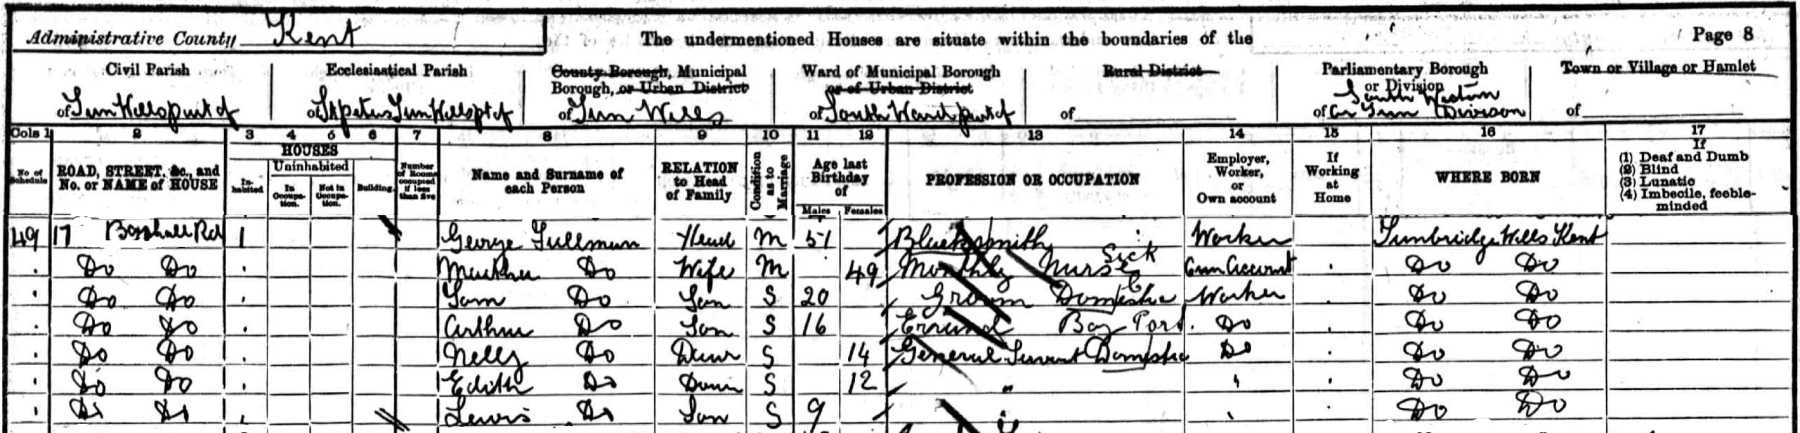 Administrative County Kent The undermentioned Houses are situate within the boundaries of the Page 8
Civil Parish Ecclesiastical Parish County Borough, Municipal Borough, or Urban District Ward of Municipal Borough or of Urban District Rural District Parliamentary Borough or Division Town or Village or Hamlet
of Tun Wells part of of St Peters Tun Wells pt of of Tun Wells of South Ward part of of of South Western Division of
Cols 1 2 3 4 5 6 7 8 9 10 11 12 13 14 15 16 17
No. of Schedule ROAD, STREET, &c., and No. or NAME of HOUSE HOUSES Inhabited Uninhabited In Occupation. Not in Occupation. Building. Number of Rooms occupied if less than five Name and Surname of each Person RELATION to Head of Family Condition as to Marriage Age last Birthday of Males Females PROFESSION OR OCCUPATION Employer, Worker, or Own account If Working at Home WHERE BORN If (1) Deaf and Dumb (2) Blind (3) Lunatic (4) Imbecile, feeble-minded
49 17 Rd 1 George Head M 51 Blacksmith Worker Tunbridge Wells Kent
Do Do Do Wife M 49 Monthly Nurse Sick Own Account Do Do
Do Do Tom Do Son S 20 Groom Domestic Worker Do Do
Do Do Arthur Do Son S 16 Errand Boy Port. Do Do Do
Do Do Nelly Do Daur S 14 General Servant Domestic Do Do Do
Do Do Edith Do Daur S 12 " Do Do
Do Do Lewis Do Son S 9 Do Do